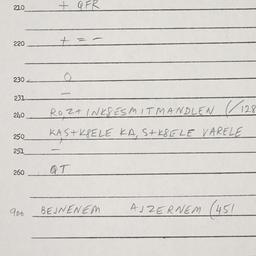 210 + QFR
220 + = -
230 O
231 -
240 ROZ+INK8ESMITMANDLEN (/128
250 KAS+K8ELE KA, S+K8ELE VARELE
251 -
260 QT
900 BEJNENEM AJZERNEM (451